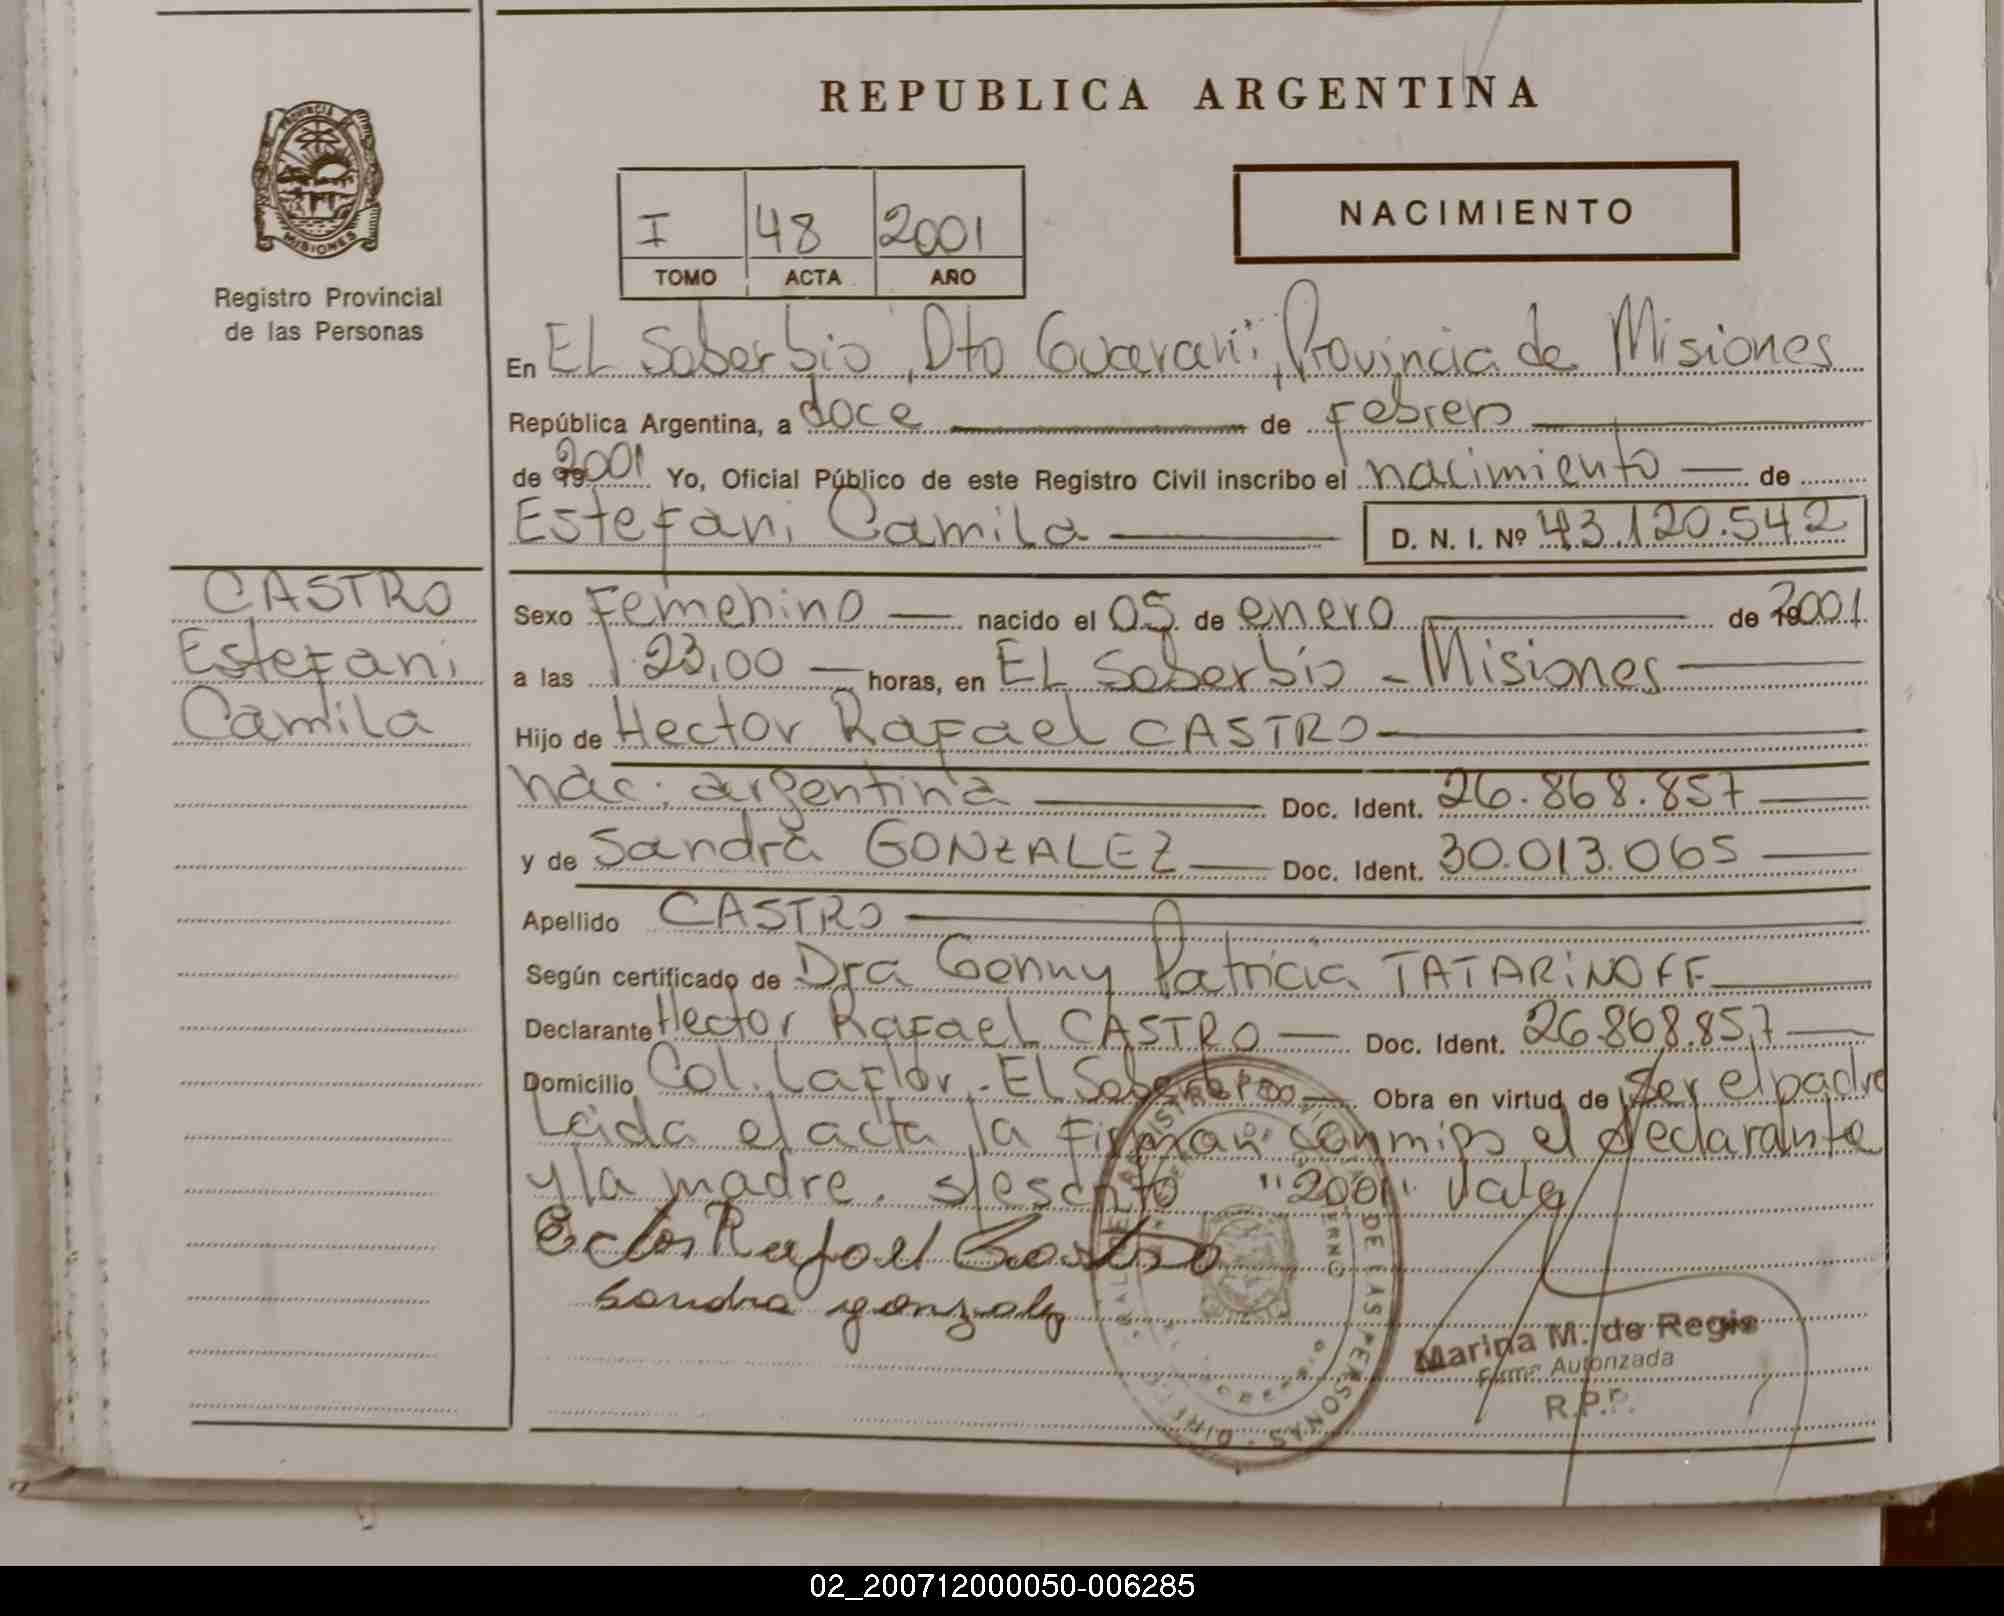 REPUBLICA ARGENTINA
PROVINCIA DE
MISIONES
Registro Provincial
de las Personas
I 48 2001
TOMO ACTA AÑO
NACIMIENTO
En EL Soberbio, Dto Guarani, Provincia de Misiones
República Argentina, a doce de Febrero
de 19 2001 Yo, Oficial Público de este Registro Civil inscribo el nacimiento de
Estefani Camila D. N. I. Nº 43.120.542
CASTRO
Estefani
Camila
Sexo Femenino nacido el 05 de enero de 19 2001
a las 23,00 horas, en EL Soberbio - Misiones
Hijo de Hector Rafael CASTRO
nac. argentina Doc. Ident. 26.868.857
y de Sandra GONZALEZ Doc. Ident. 30.013.065
Apellido CASTRO
Según certificado de Dra Genny Patricia TATARINOFF
Declarante Hector Rafael CASTRO Doc. Ident. 26.868.857
Domicilio Col. La flor - EL Soberbio Obra en virtud de Ser el padre
Leida el acta la Firman conmigo el declarante
y la madre. s/escrito "2001" Vale
Ector Rafael Castro
Sandra gonzalez
Marina M. de Regis
Firma Autorizada
R.P.P.
02_200712000050-006285